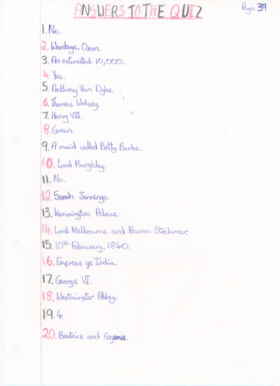 ANSWERS TO THE QUIZ
Page 39
1. No.
2. Wantage, Oxon.
3. An estimated 10,000.
4. Yes.
5. Anthony Van Dyke.
6. Thomas Wolsey.
7. Henry VIII.
8. Green.
9. A maid called Betty Burke.
10. Lord Burghley.
11. No.
12. Sarah Jennings.
13. Kensington Palace.
14. Lord Melbourne and Baron Stockmar.
15. 10th February, 1840.
16. Empress of India.
17. George VI.
18. Westminster Abbey.
19. 4.
20. Beatrice and Eugenie.